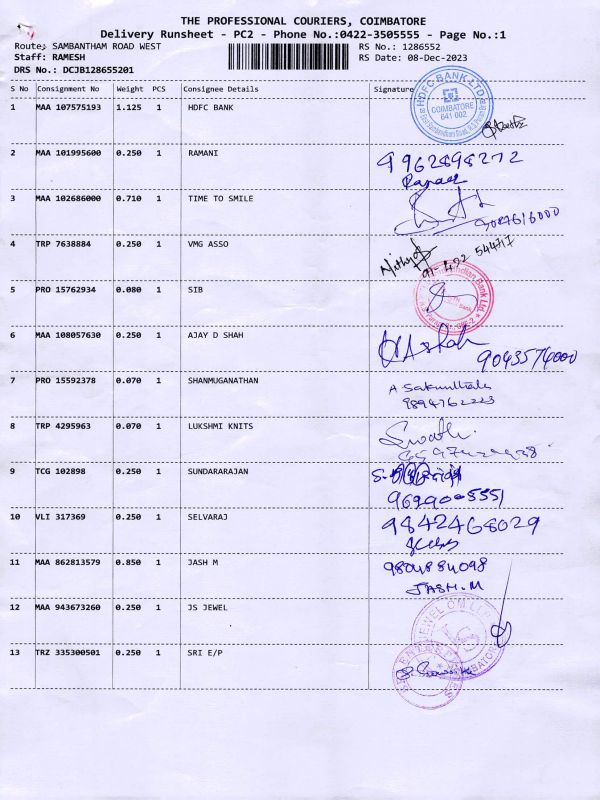 THE PROFESSIONAL COURIERS, COIMBATORE
Delivery Runsheet - PC2 - Phone No.:0422-3505555 - Page No.:1
Route: SAMBANTHAM ROAD WEST RS No.: 1286552
Staff: RAMESH RS Date: 08-Dec-2023
DRS No.: DCJB128655201
S No Consignment No Weight PCS Consignee Details Signature
1 MAA 107575193 1.125 1 HDFC BANK
HDFC BANK LTD
COIMBATORE
641 002
2 MAA 101995600 0.250 1 RAMANI
9962898272
3 MAA 102686000 0.710 1 TIME TO SMILE
4 TRP 7638884 0.250 1 VMG ASSO
544717
5 PRO 15762934 0.080 1 SIB
Indian Bank Ltd.
6 MAA 108057630 0.250 1 AJAY D SHAH
9043574000
7 PRO 15592378 0.070 1 SHANMUGANATHAN
A Sakunthala
9894762223
8 TRP 4295963 0.070 1 LUKSHMI KNITS
Swathi.
9 TCG 102898 0.250 1 SUNDARARAJAN
9629005551
10 VLI 317369 0.250 1 SELVARAJ
9842468029
11 MAA 862813579 0.850 1 JASH M
9804884098
JASH.M
12 MAA 943673260 0.250 1 JS JEWEL
13 TRZ 335300501 0.250 1 SRI E/P